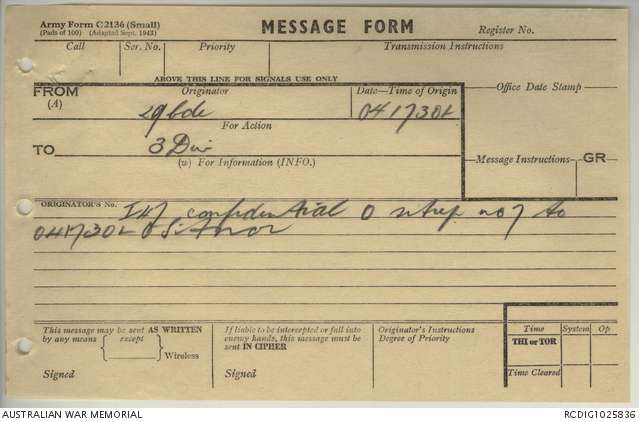 Army Form C2136 (Small)
(Pads of 100) (Adapted Sept. 1943)
MESSAGE FORM
Register No.
Call Ser. No. Priority Transmission Instructions
ABOVE THIS LINE FOR SIGNALS USE ONLY
FROM (A) Originator Date—Time of Origin Office Date Stamp
29 bde 041730L
For Action
TO 3 Div
(w) For Information (INFO.) Message Instructions GR
ORIGINATOR'S No. I47 confidential O sitrep no 7 to
041730L O Sitnor
This message may be sent AS WRITTEN
by any means except
Wireless
Signed
If liable to be intercepted or fall into
enemy hands, this message must be
sent IN CIPHER
Signed
Originator's Instructions
Degree of Priority
Time System Op
THI or TOR
Time Cleared
AUSTRALIAN WAR MEMORIAL RCDIG1025836